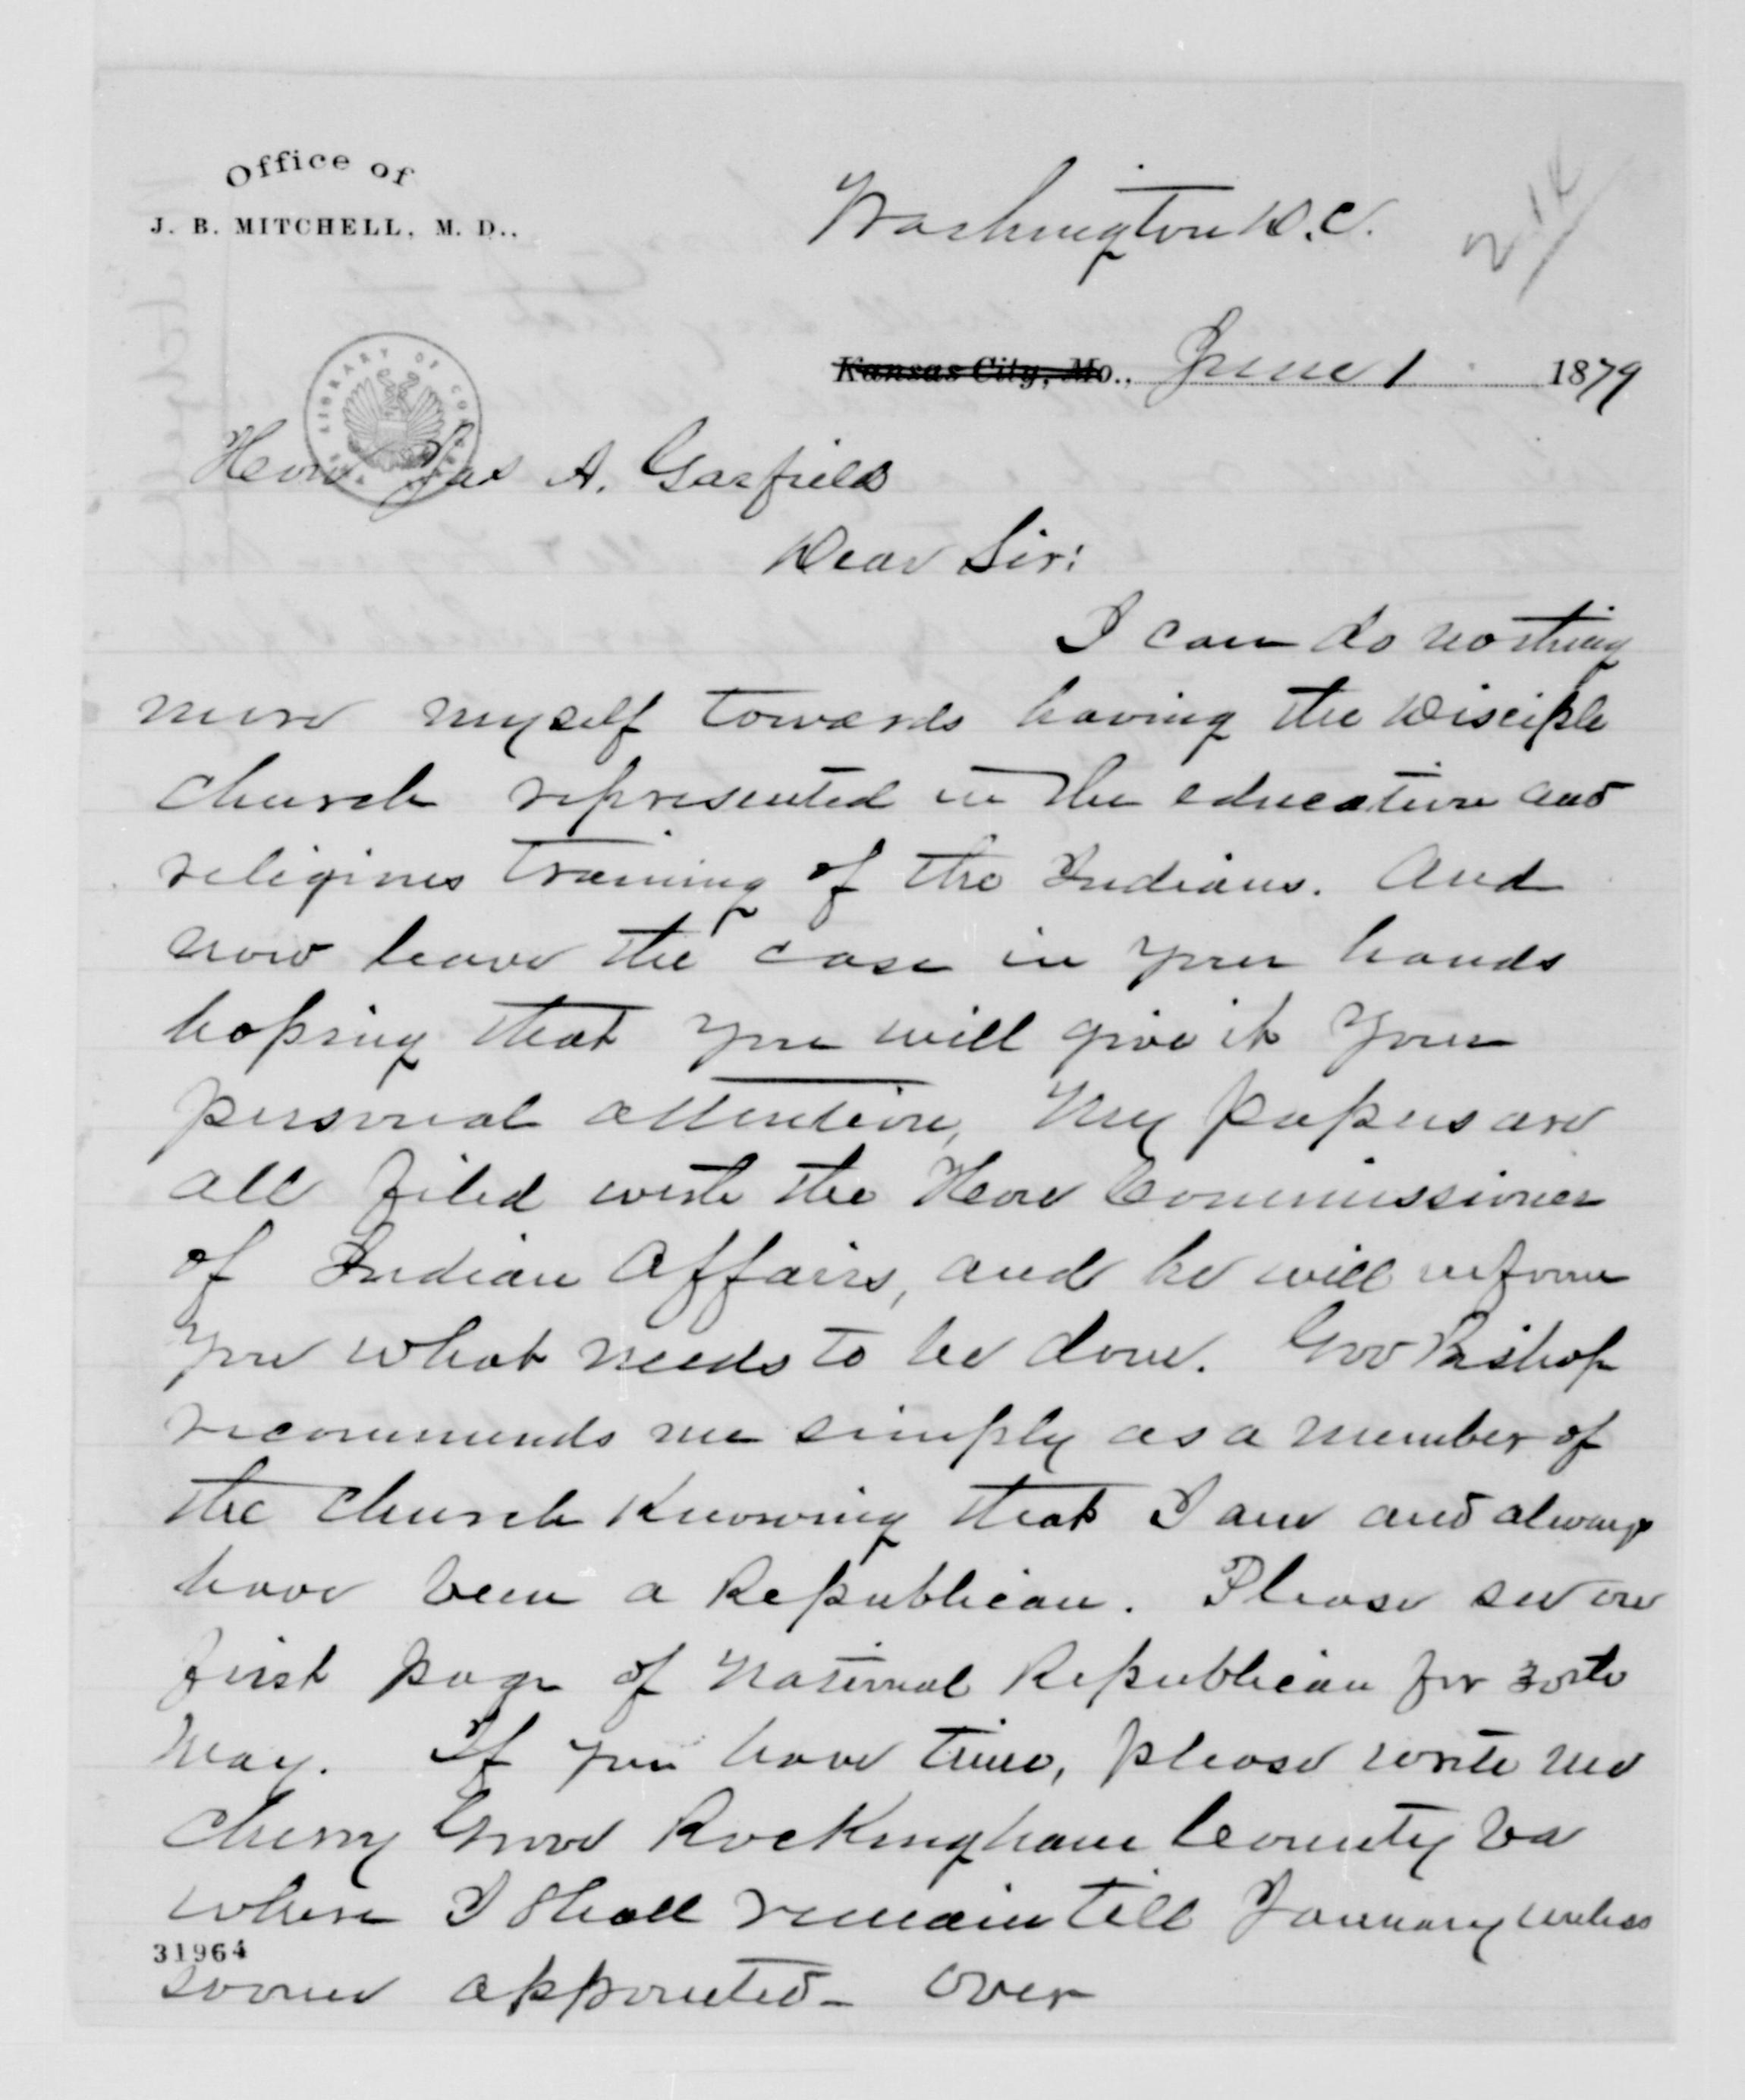 Office of
J. B. MITCHELL, M. D.,
Washington D.C.
Kansas City, Mo., June 1 1879
Hon. Jas A. Garfield
Dear Sir:
I can do nothing
more myself towards having the Disciple
church represented in the education and
religious training of the Indians. And
now leave the case in your hands
hoping that you will give it your
personal attention, My papers are
all filed with the Hon Commissioner
of Indian Affairs, and he will inform
you what needs to be done. Gov Bishop
recommends me simply as a member of
the church knowing that I am and always
have been a Republican. Please see on
first page of National Republican for 30th
May. If you have time, please write me
Cherry Grove Rockingham County Va
where I shall remain till January unless
31964
sooner appointed - over